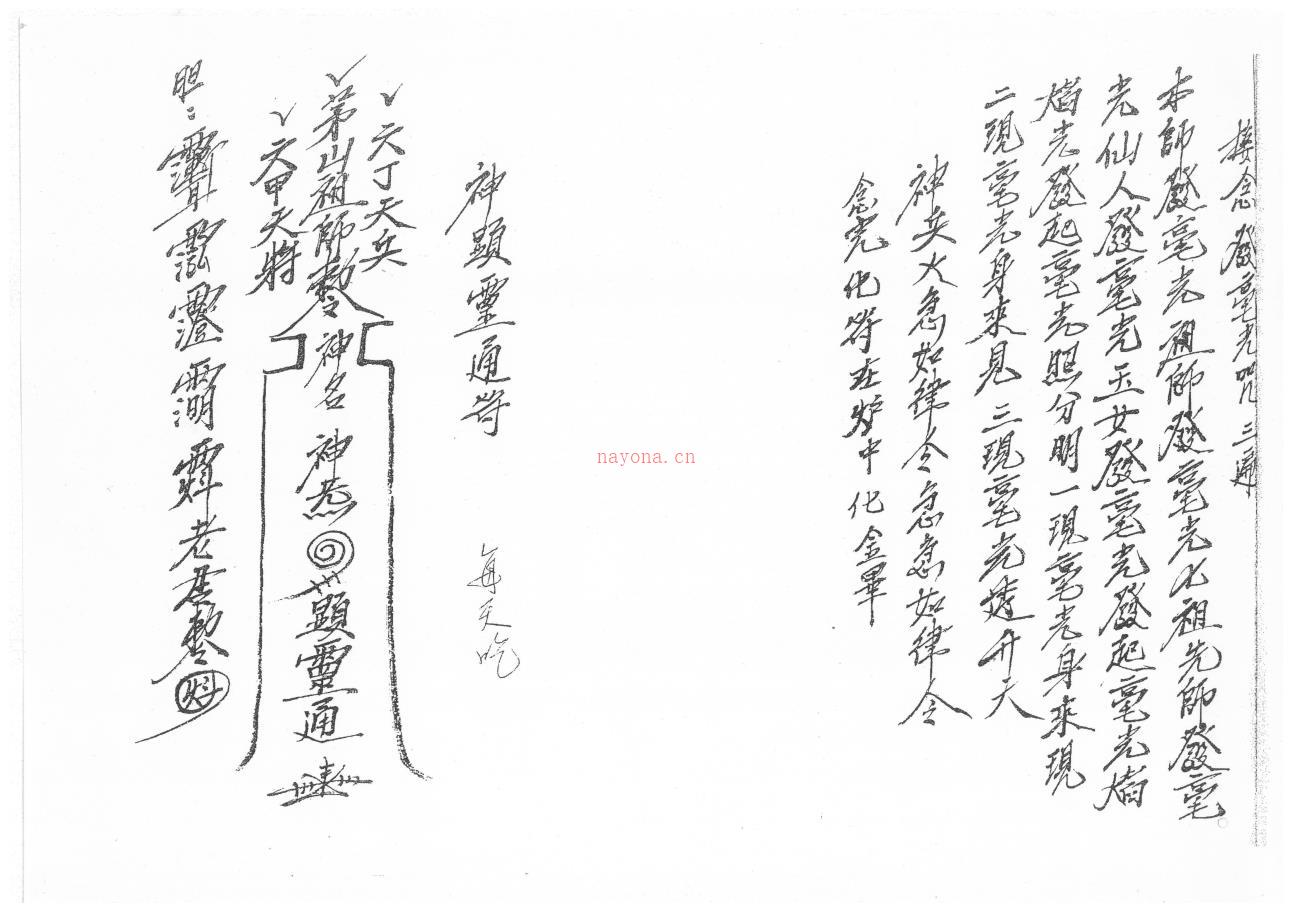 接念發毫光咒三遍
本師發毫光祖師發毫光七祖先師發毫
光仙人發毫光玉女發毫光發起毫光
光發起毫光照分明一現毫光身來現
二現毫光身來見三現毫光透开天
神兵火急如律令急急如律令
念完化符在炉中化金畢
神顯靈通符
每天吃
天丁天兵
茅山祖師勅令
六甲天將
神名
神
顯靈通
胆:
老君勅令
nayona.cn